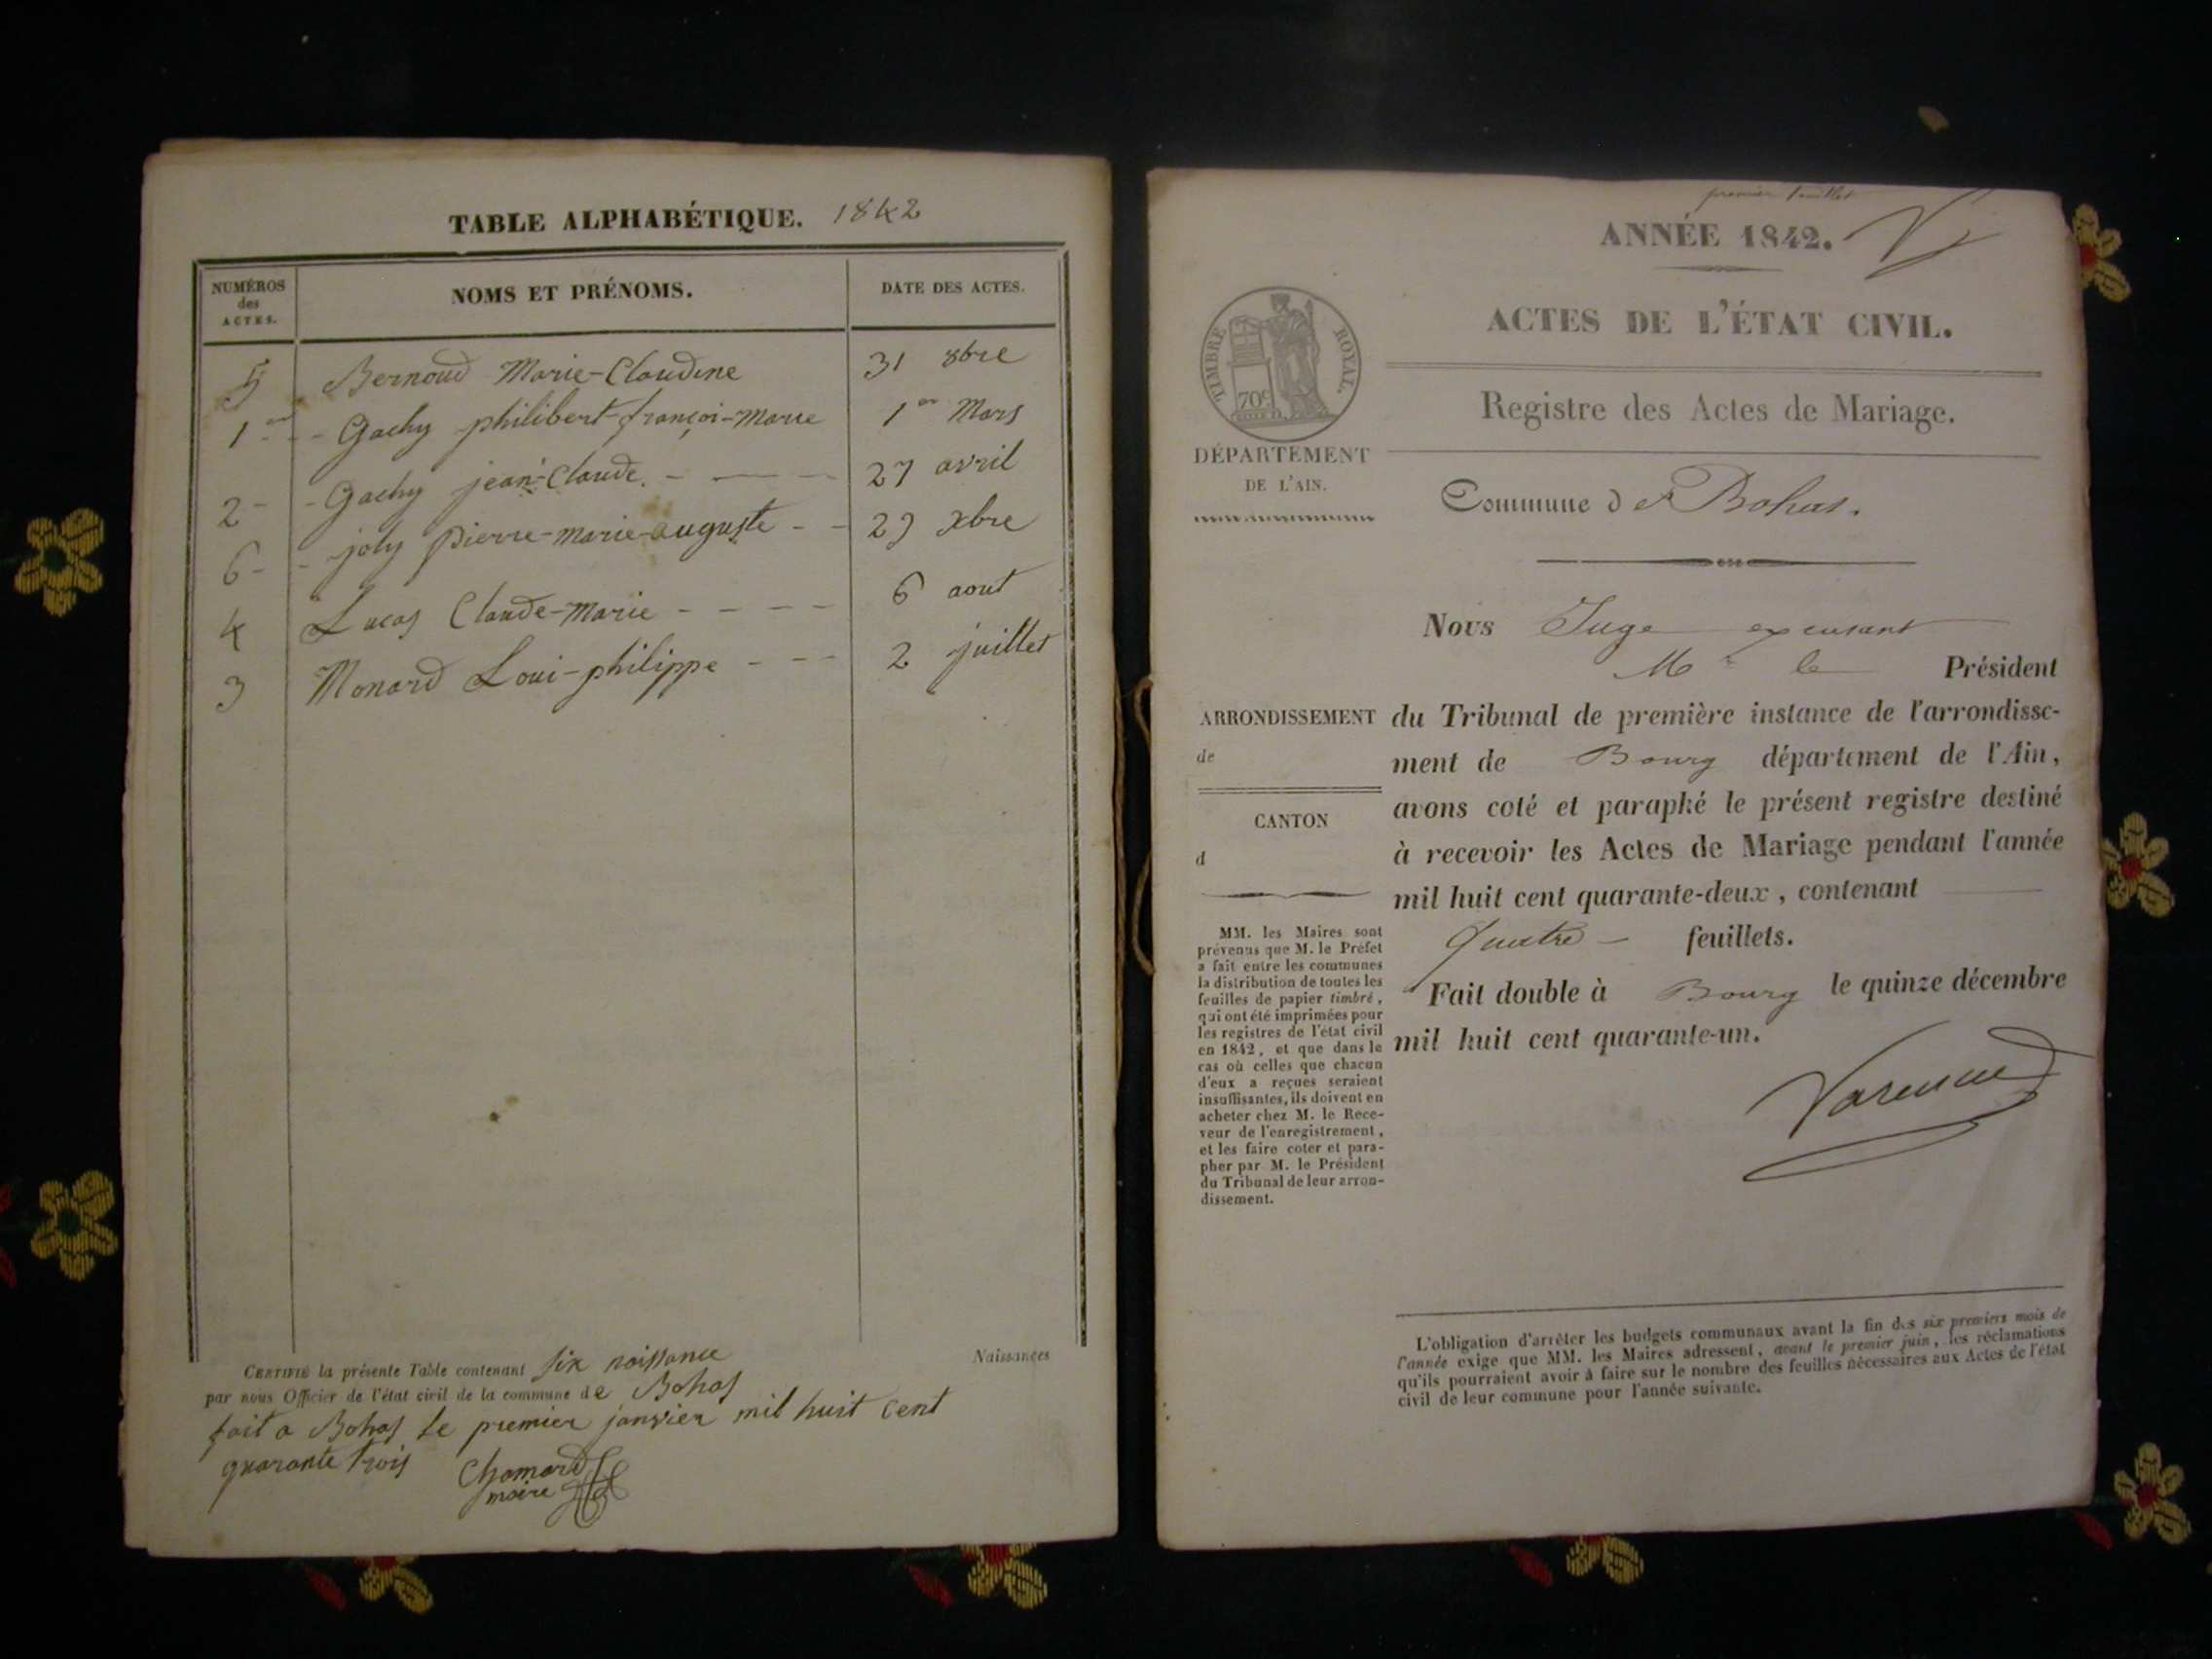 TABLE ALPHABÉTIQUE. 1842
NUMÉROS
des
ACTES.
NOMS ET PRÉNOMS.
DATE DES ACTES.
5 Bernoud Marie-Claudine 31 8bre
1er - - Gachy philibert-françoi-marie 1er Mars
2 - - Gachy jean-Claude. - - - 27 avril
6 - - joly pierre-marie-auguste - - 29 xbre
4 Lucas Claude-marie - - - - 6 aout
3 Monard Loui-philippe - - - 2 juillet
CERTIFIÉ la présente Table contenant six naissance Naissances
par nous Officier de l'état civil de la commune de Bohas
fait a Bohas le premier janvier mil huit cent
quarante trois Chamard
maire
premier feuillet
ANNÉE 1842.
ACTES DE L'ÉTAT CIVIL.
TIMBRE ROYAL.
70c
Registre des Actes de Mariage.
DÉPARTEMENT
DE L'AIN.
Commune de Bohas.
Nous Juge excusant
Mr le Président
ARRONDISSEMENT
de
CANTON
d
du Tribunal de première instance de l'arrondisse-
ment de Bourg département de l'Ain,
avons coté et paraphé le présent registre destiné
à recevoir les Actes de Mariage pendant l'année
mil huit cent quarante-deux, contenant
quatre - feuillets.
Fait double à Bourg le quinze décembre
mil huit cent quarante-un.
MM. les Maires sont
prévenus que M. le Préfet
a fait entre les communes
la distribution de toutes les
feuilles de papier timbré,
qui ont été imprimées pour
les registres de l'état civil
en 1842, et que dans le
cas où celles que chacun
d'eux a reçues seraient
insuffisantes, ils doivent en
acheter chez M. le Rece-
veur de l'enregistrement,
et les faire coter et para-
pher par M. le Président
du Tribunal de leur arron-
dissement.
L'obligation d'arrêter les budgets communaux avant la fin des six premiers mois de
l'année exige que MM. les Maires adressent, avant le premier juin, les réclamations
qu'ils pourraient avoir à faire sur le nombre des feuilles nécessaires aux Actes de l'état
civil de leur commune pour l'année suivante.